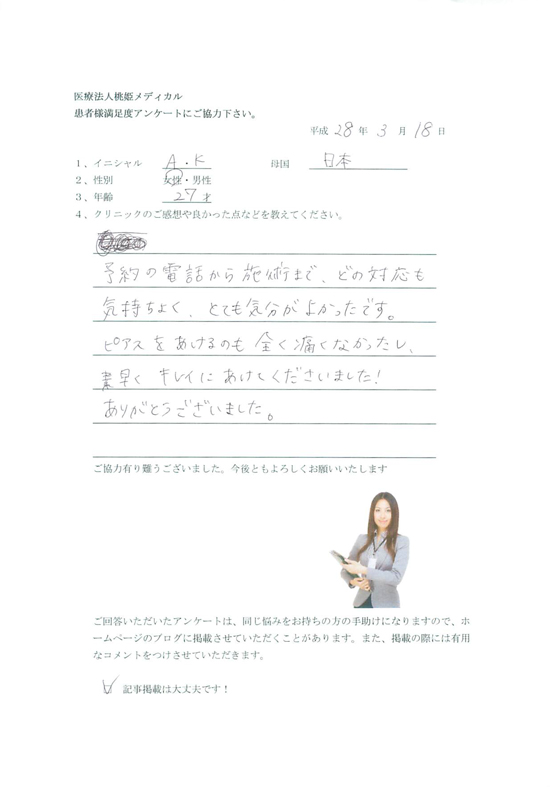 医療法人桃姫メディカル
患者様満足度アンケートにご協力下さい。
平成 28 年 3 月 18 日
1、イニシャル A・K 母国 日本
2、性別 女性・男性
3、年齢 27才
4、クリニックのご感想や良かった点などを教えてください。
予約の電話から施術まで、どの対応も
気持ちよく、とても気分がよかったです。
ピアスをあけるのも全く痛くなかったし、
素早くキレイにあけてくださいました!
ありがとうございました。
ご協力有り難うございました。今後ともよろしくお願いいたします
ご回答いただいたアンケートは、同じ悩みをお持ちの方の手助けになりますので、ホ
ームページのブログに掲載させていただくことがあります。また、掲載の際には有用
なコメントをつけさせていただきます。
記事掲載は大丈夫です!